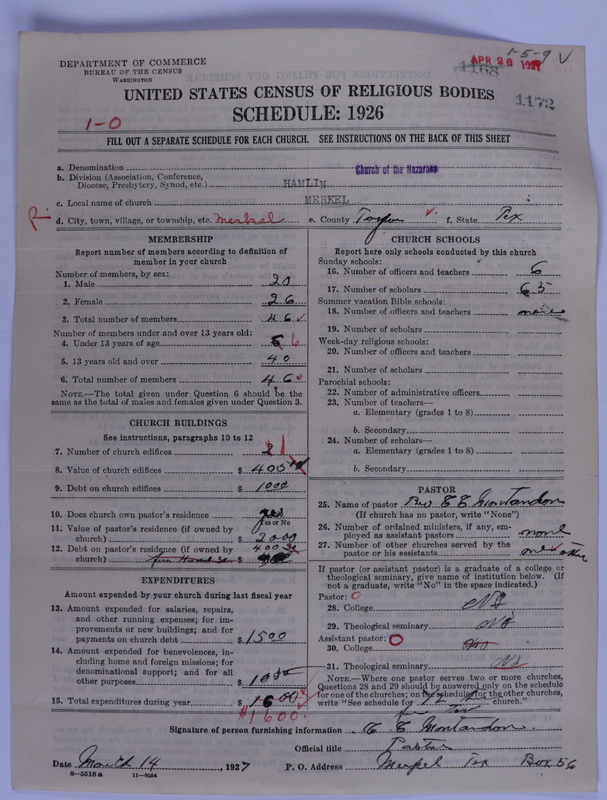 DEPARTMENT OF COMMERCE
BUREAU OF THE CENSUS
WASHINGTON
1-5-9 V
APR 26 1927
1168
UNITED STATES CENSUS OF RELIGIOUS BODIES
SCHEDULE: 1926
1172
1-0
FILL OUT A SEPARATE SCHEDULE FOR EACH CHURCH. SEE INSTRUCTIONS ON THE BACK OF THIS SHEET
a. Denomination Church of the Nazarene
b. Division (Association, Conference, Diocese, Presbytery, Synod, etc.) HAMLIN
c. Local name of church MERKEL
d. City, town, village, or township, etc. Merkel e. County Taylor f. State Tex
MEMBERSHIP
Report number of members according to definition of member in your church
Number of members, by sex:
1. Male 20
2. Female 26
3. Total number of members 46
Number of members under and over 13 years old:
4. Under 13 years of age 6
5. 13 years old and over 40
6. Total number of members 46
NOTE.—The total given under Question 6 should be the same as the total of males and females given under Question 3.
CHURCH BUILDINGS
See instructions, paragraphs 10 to 12
7. Number of church edifices 1
8. Value of church edifices $ 400
9. Debt on church edifices $ 1000
10. Does church own pastor's residence yes
Yes or No
11. Value of pastor's residence (if owned by church) $ 2000
12. Debt on pastor's residence (if owned by church) $ 400
EXPENDITURES
Amount expended by your church during last fiscal year
13. Amount expended for salaries, repairs, and other running expenses; for improvements or new buildings; and for payments on church debt $ 1500
14. Amount expended for benevolences, including home and foreign missions; for denominational support; and for all other purposes $ 100
15. Total expenditures during year $ 1600
$1600.
CHURCH SCHOOLS
Report here only schools conducted by this church
Sunday schools:
16. Number of officers and teachers 6
17. Number of scholars 65
Summer vacation Bible schools:
18. Number of officers and teachers none
19. Number of scholars
Week-day religious schools:
20. Number of officers and teachers
21. Number of scholars
Parochial schools:
22. Number of administrative officers
23. Number of teachers—
a. Elementary (grades 1 to 8)
b. Secondary
24. Number of scholars—
a. Elementary (grades 1 to 8)
b. Secondary
PASTOR
25. Name of pastor Rev E E Montandon
(If church has no pastor, write "None")
26. Number of ordained ministers, if any, employed as assistant pastors none
27. Number of other churches served by the pastor or his assistants one other
If pastor (or assistant pastor) is a graduate of a college or theological seminary, give name of institution below. (If not a graduate, write "No" in the space indicated.)
Pastor: O
28. College No
29. Theological seminary No
Assistant pastor: O
30. College No
31. Theological seminary No
NOTE.—Where one pastor serves two or more churches, Questions 28 and 29 should be answered only on the schedule for one of the churches; on the schedules for the other churches, write "See schedule for church."
Signature of person furnishing information E E Montandon
Official title Pastor
Date March 14, 1927 P. O. Address Merkel Tex Box 56
8—5518a 11—9264